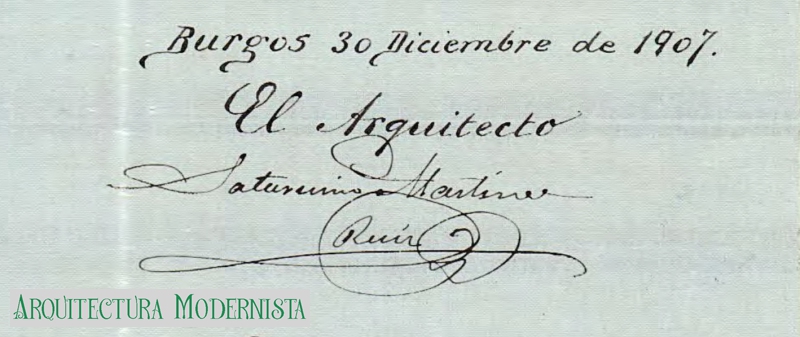 Burgos 30 Diciembre de 1907.
El Arquitecto
Saturnino Martínez
Ruiz
ARQUITECTURA MODERNISTA